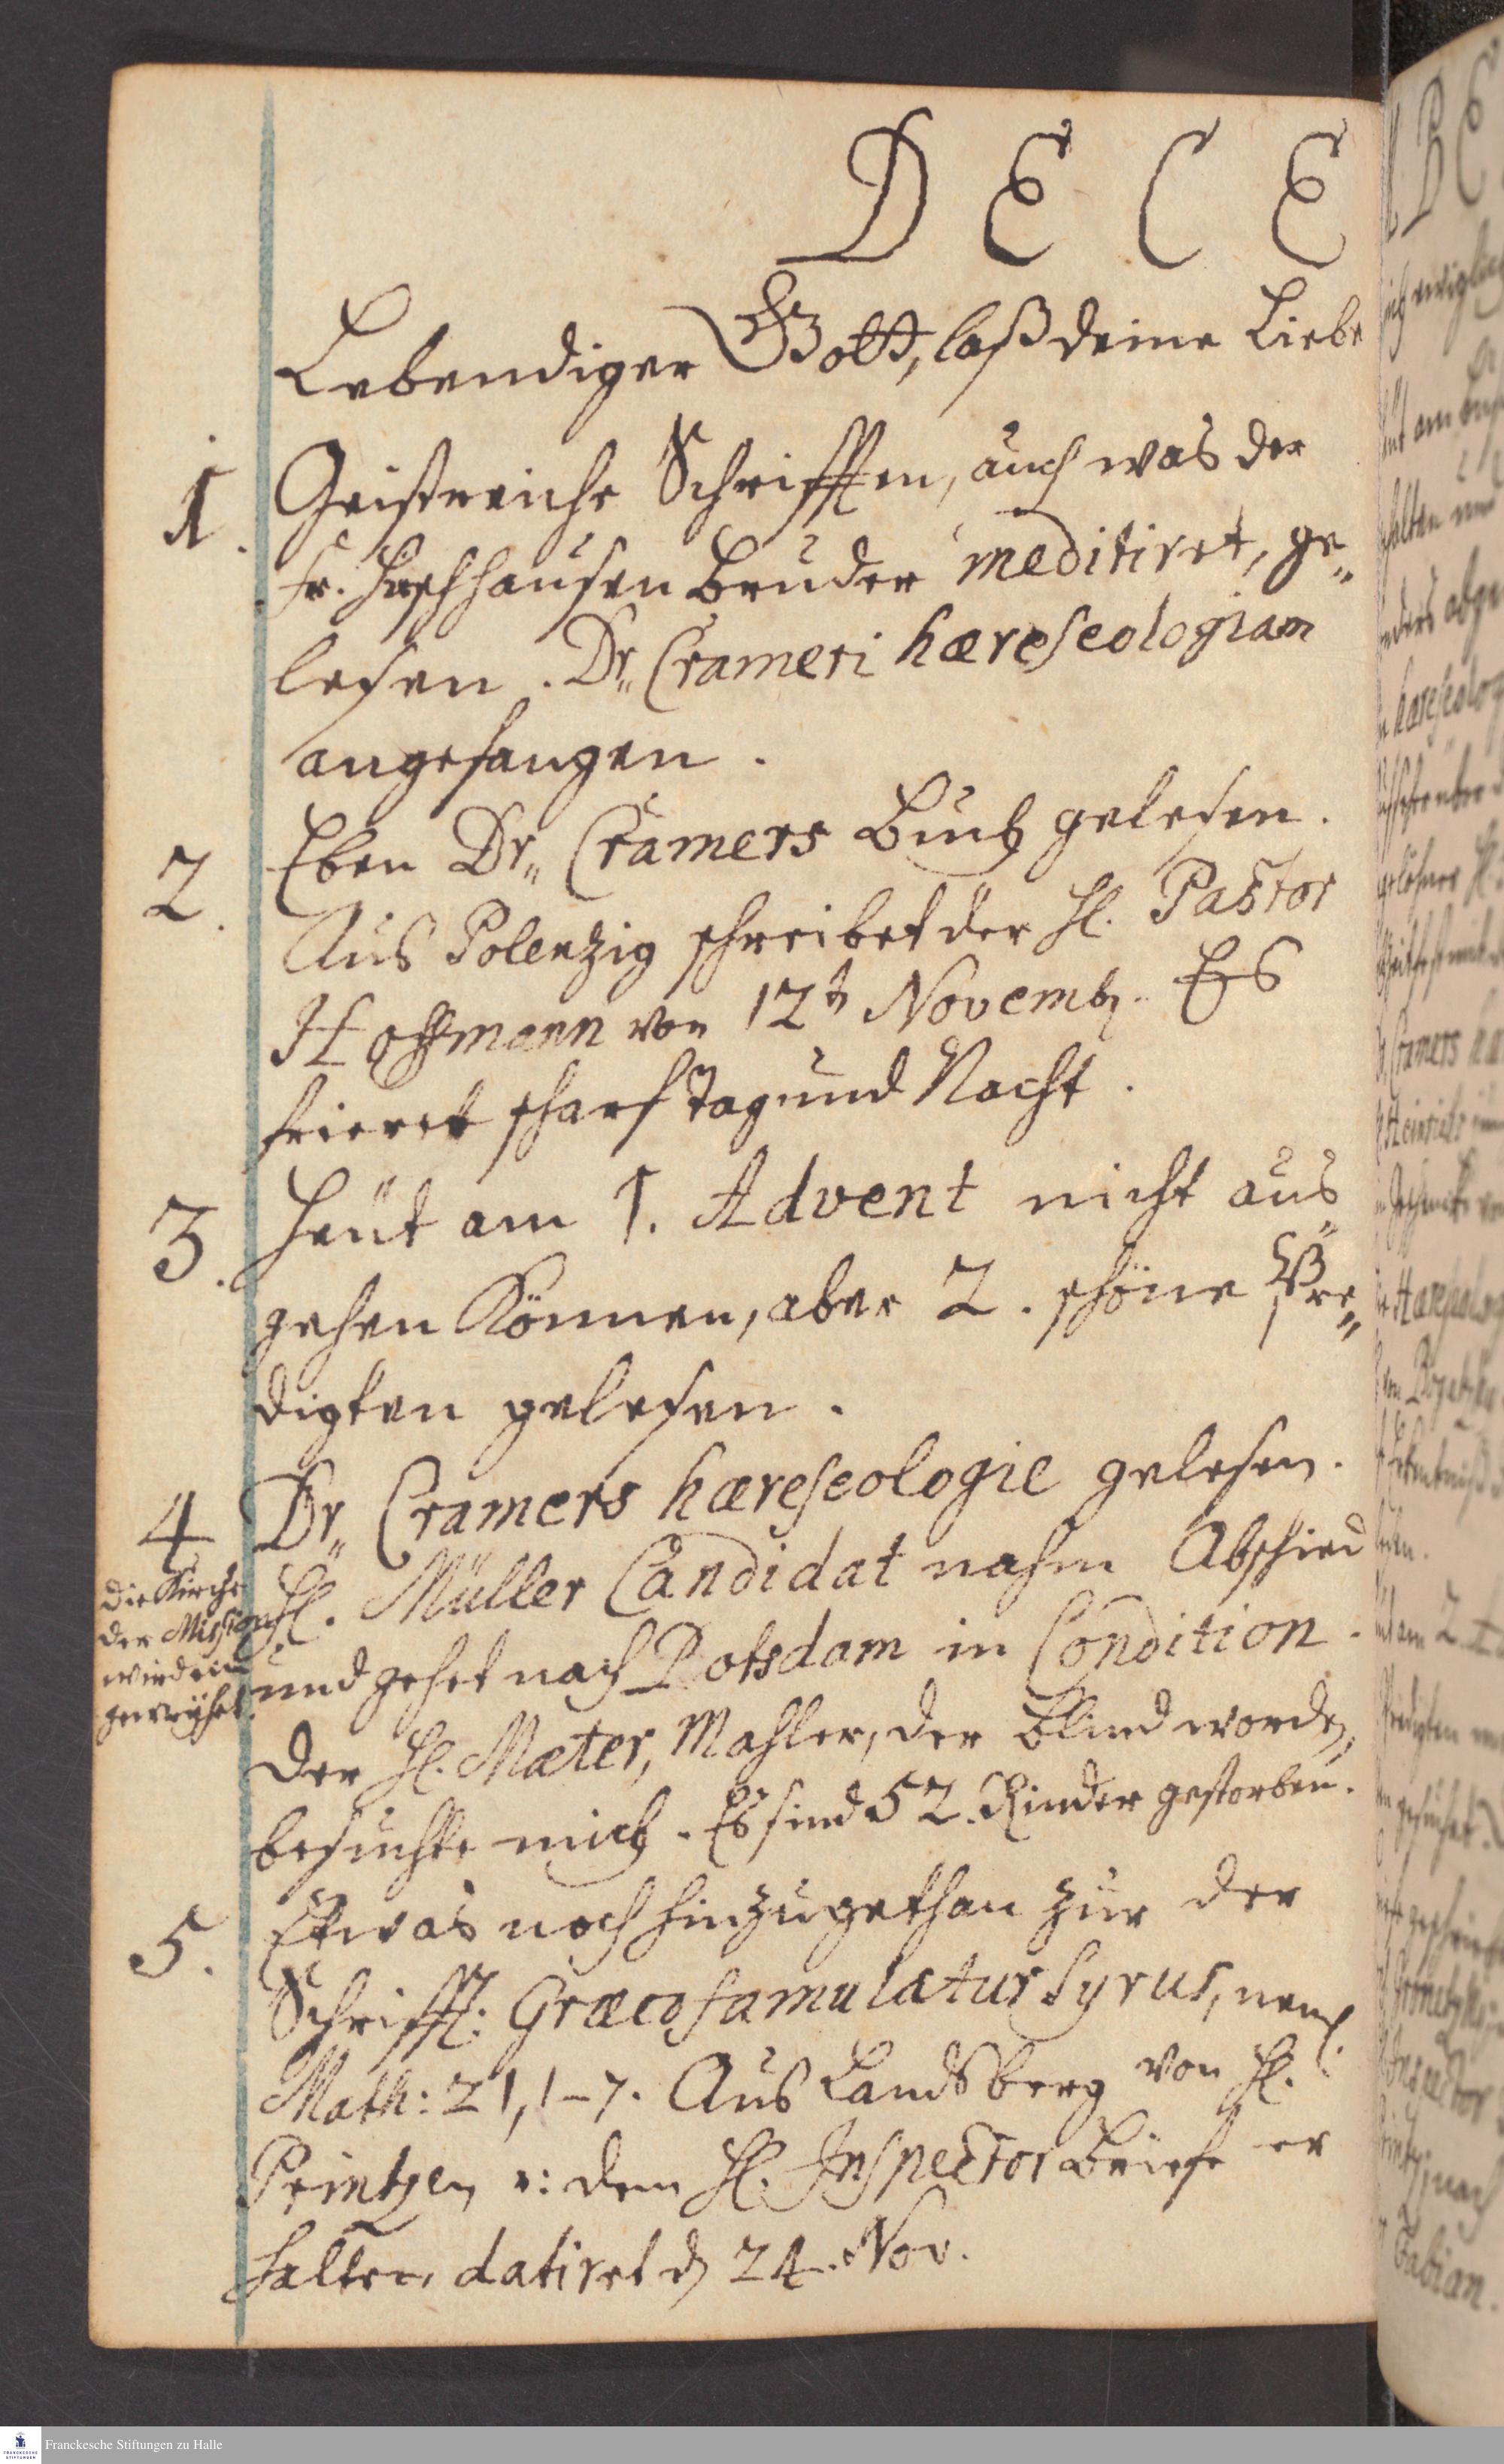 DECE
Lebendiger Gott, laß deine Liebe
1. Geistreiche Schrifften, auch was der
Fr. Hochhausen Bruder meditiret, ge„
lesen. Dr„ Crameri hæreseologiam
angefangen.
2. Eben Dr„ Cramers Buch gelesen.
Aus Polenzig schreibet der H. Pastor
Hoffmann von 12t Novembr. Es
frieret scharf Tag und Nacht.
3. Heut am 1. Advent nicht aus
gehen können, aber 2. schöne Pre„
digten gelesen.
4 Dr„ Cramers hæreseologie gelesen.
H. Müller Candidat nahm Abschied
und gehet nach Potsdam in Condition.
Der H. Mæter, Mahler, der Blind worden,
besuchte mich. Es sind 52. Kinder gestorben.
die Kirche
der Mission
wird ein
geweyhet.
5. Etwas noch hinzugethan zur der
Schrifft: Græco famulatur Syrus, neml.
Math: 21, 1-7. Aus Landsberg von H.
Printzen u: dem H. Inspector Briefe er
halten, datiret d 24. Nov.
Franckesche Stiftungen zu Halle